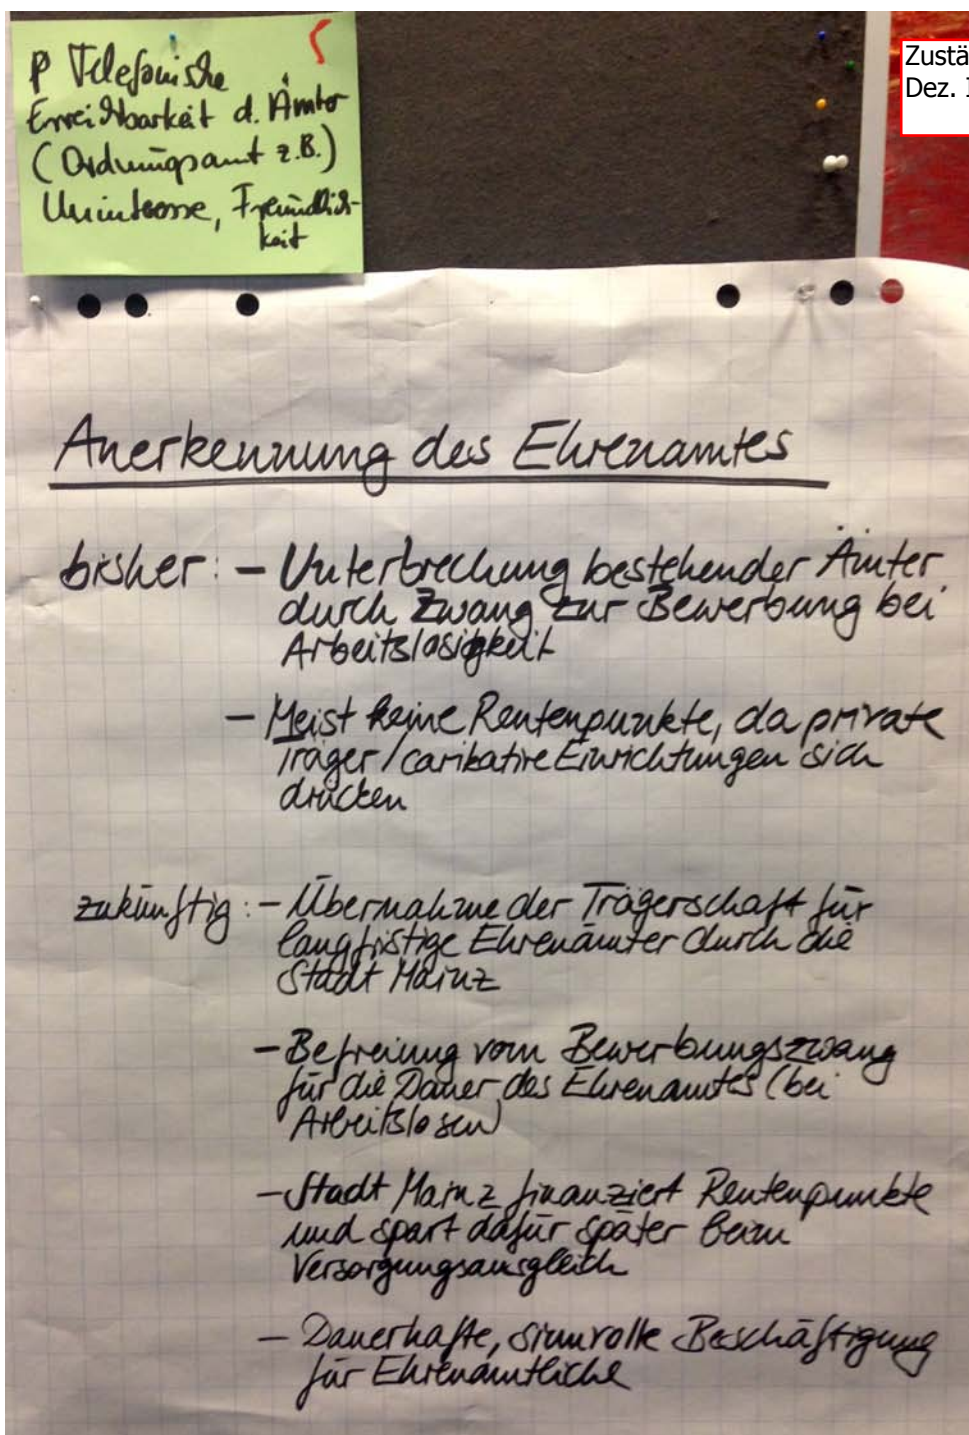 Telefonische
Erreichbarkeit d. Ämter
(Ordnungsamt z.B.)
Uninteresse, Freundlich-
keit
Zustä
Dez. I
Anerkennung des Ehrenamtes
bisher: - Unterbrechung bestehender Ämter
durch Zwang zur Bewerbung bei
Arbeitslosigkeit
- Meist keine Rentenpunkte, da private
Träger/caritative Einrichtungen sich
drücken
zukünftig: - Übernahme der Trägerschaft für
langfristige Ehrenämter durch die
Stadt Mainz
- Befreiung vom Bewerbungszwang
für die Dauer des Ehrenamtes (bei
Arbeitslosen)
- Stadt Mainz finanziert Rentenpunkte
und spart dafür später beim
Versorgungsausgleich
- Dauerhafte, sinnvolle Beschäftigung
für Ehrenamtliche